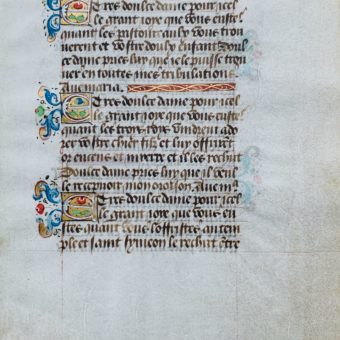 Tres doulce dame pour icel
le grant ioye que vous eustes
quant les pastoureaulx vous trou
uerent et vostre doulx enfant doul
ce dame pries luy que ie puisse trou
uer en toutes mes tribulations
Aue maria.
Tres doulce dame pour icel
le grant ioye que vous eustes
quant les trois roys vindrent ado
rer vostre chier filz et luy offrirent
or encens et mierre et il les rechut
Doulce dame pries luy que il veul
le rechevoir mon oroison. Aue mar
Tres doulce dame pour icel
le grant ioye que vous eus
tes quant vous loffristes au tem
ple et saint symeon le rechut entre